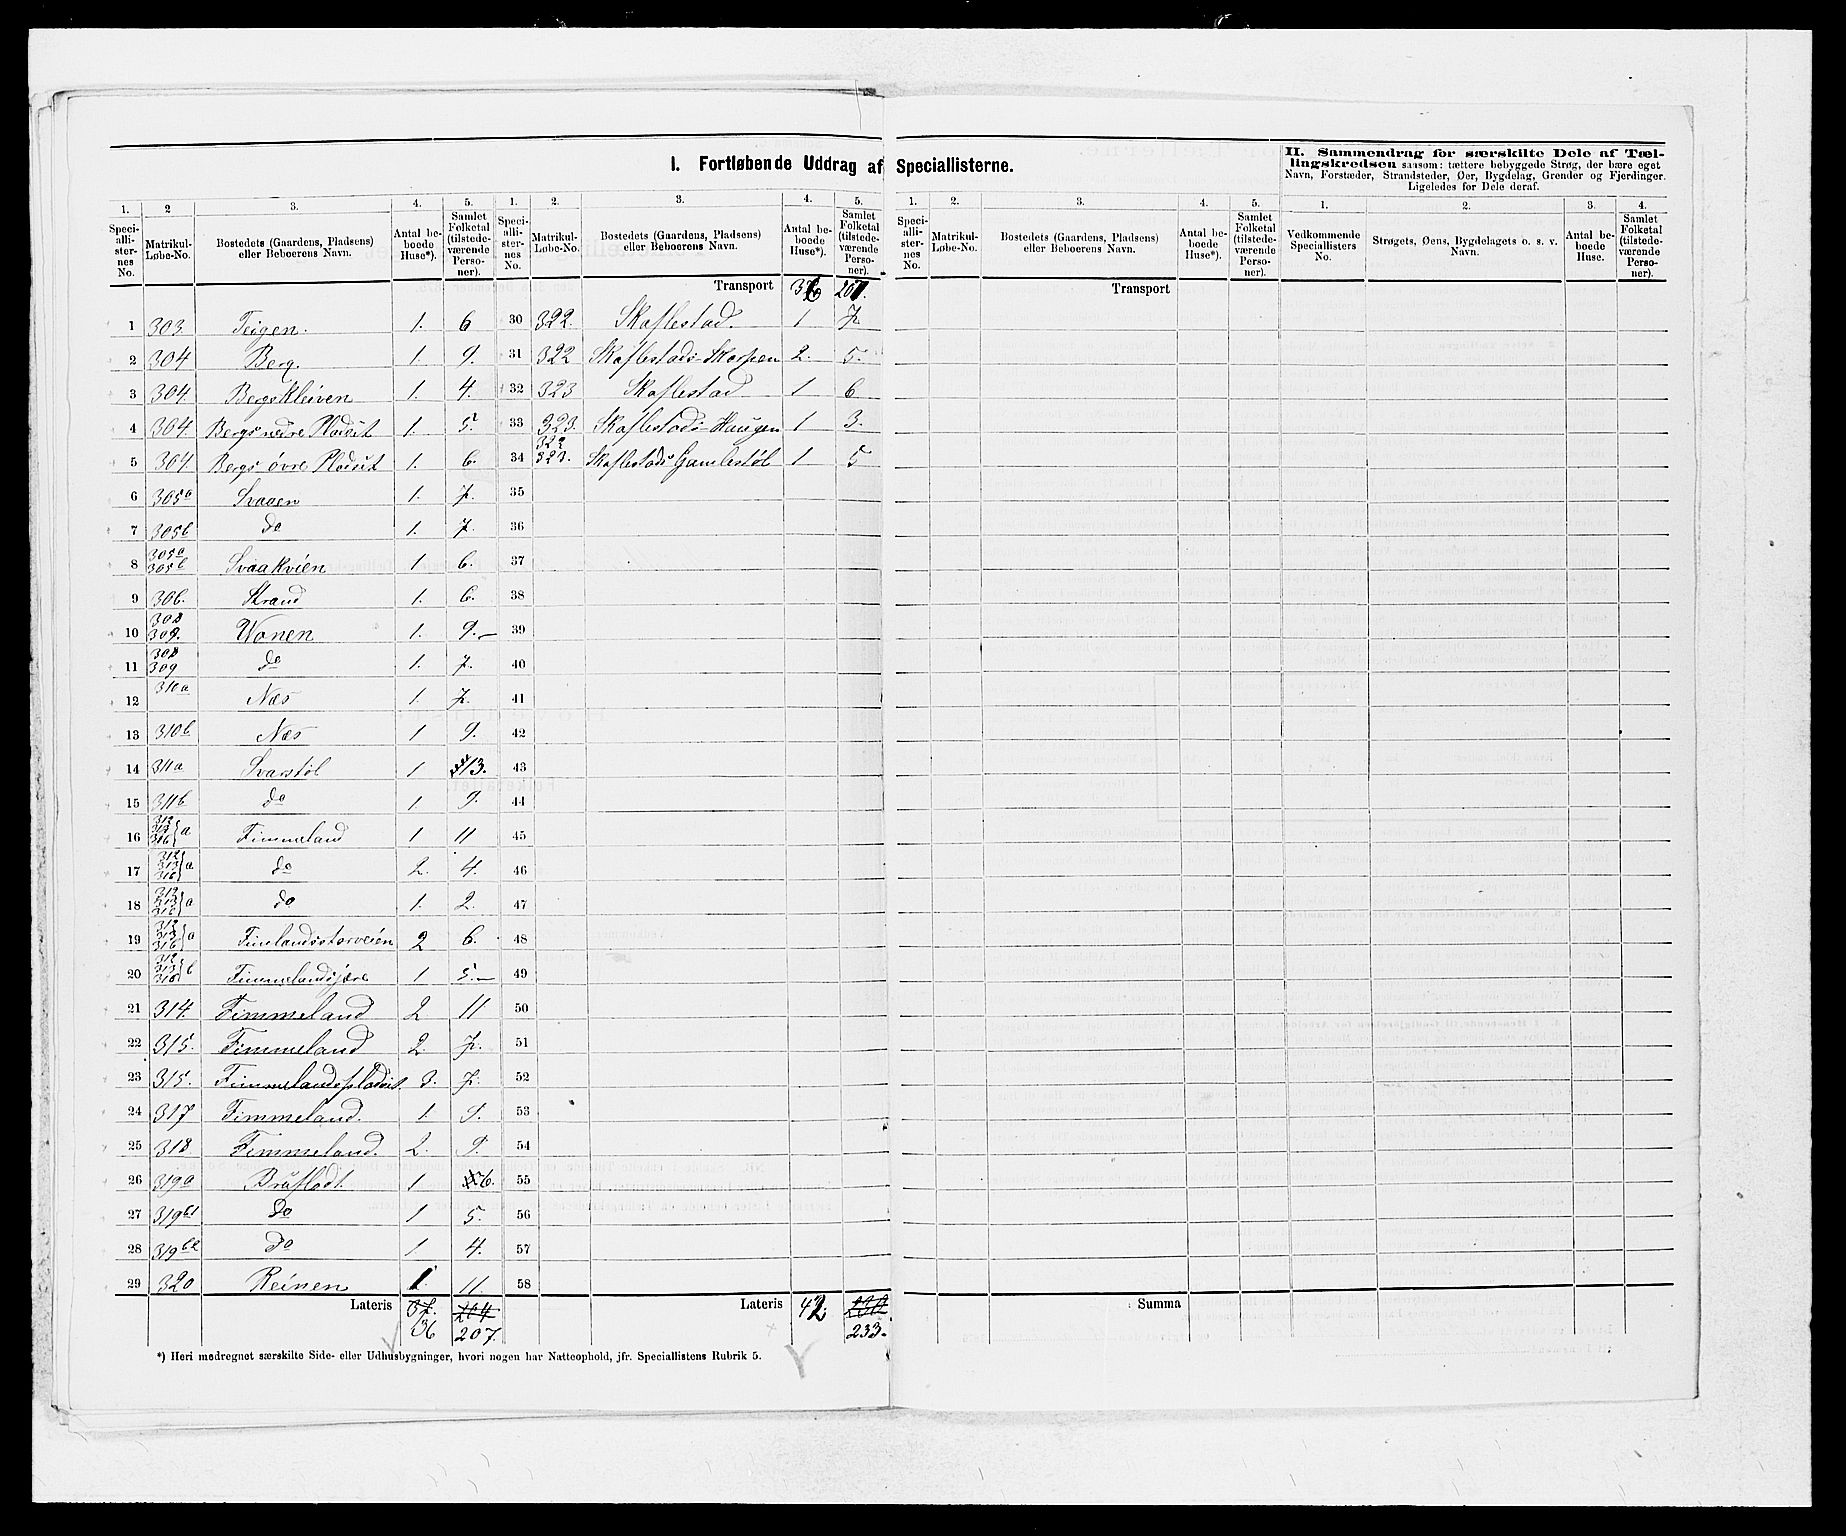 I. Fortløbende Uddrag af Speciallisterne.
II. Sammendrag for særskilte Dele af Tællingskredsen saasom: tættere bebyggede Strøg, der bære eget
Navn, Forstæder, Strandsteder, Øer, Bygdelag, Grender og Fjerdinger.
Ligeledes for Dele deraf.
1. 2 3. 4. 5. 1. 2. 3. 4. 5. 1. 2. 3. 4. 5. 1. 2. 3. 4.
Speciallisternes No. Matrikul-Løbe-No. Bostedets (Gaardens, Pladsens) eller Beboerens Navn. Antal beboede Huse*). Samlet Folketal (tilstedeværende Personer).
Speciallisternes No. Matrikul-Løbe-No. Bostedets (Gaardens, Pladsens) eller Beboerens Navn. Antal beboede Huse*). Samlet Folketal (tilstedeværende Personer).
Speciallisternes No. Matrikul-Løbe-No. Bostedets (Gaardens, Pladsens) eller Beboerens Navn. Antal beboede Huse*). Samlet Folketal (tilstedeværende Personer).
Vedkommende Speciallisters No. Strøgets, Øens, Bygdelagets o. s. v. Navn. Antal beboede Huse. Samlet Folketal (tilstedeværende Personer).
Transport 36 207. Transport
1 303 Teigen. 1. 6 30 322. Skaflestad. 1 7
2 304 Berg. 1. 9. 31 322 Skaflestads-Skorpen 2. 5.
3 304. Bergskleiven 1. 4. 32 323 Skaflestad 1 6
4 304. Bergs nedre Pladsit 1. 5. 33 323. Skaflestads-Haugen 1 3.
5 304 Bergs övre Pladsit 1. 6. 34 322 323. Skaflestads Gamlestøl 1 5
6 305a Svaaen 1. 7. 35
7 305b do 1. 7. 36
8 305a 305b Svaakvien 1 6. 37
9 306. Strand 1. 6. 38
10 308 309. Vonen 1. 9. 39
11 308 309 do 1. 7. 40
12 310a Næs 1. 7. 41
13 310b Næs 1 9. 42
14 311a Svarstøl 1 13. 43
15 311b do 1. 9. 44
16 312 313 316 } a Fimmeland 1 11 45
17 312 313 316 } a do 2. 4. 46
18 312 313 316 } a do 1. 2. 47
19 312 313 316 } a Fimlandsstorveien 2 6. 48
20 312 313 316 } b Fimmelandsjære 1 5. 49
21 314. Fimmeland 2 11 50
22 315. Fimmeland 2. 7. 51
23 315. Fimmelandspladsit. 3. 7. 52
24 317 Fimmeland. 1 9. 53
25 318. Fimmeland. 2. 9. 54
26 319a Bruflodt. 1 6. 55
27 319b1 do 1 5. 56
28 319b2 do 1. 4. 57
29 320 Reinen 1. 11. 58
Lateris 37. 204 Lateris 42. 232 Summa
36 207. 233.
*) Heri medregnet særskilte Side- eller Udhusbygninger, hvori nogen har Natteophold, jfr. Speciallistens Rubrik 5.